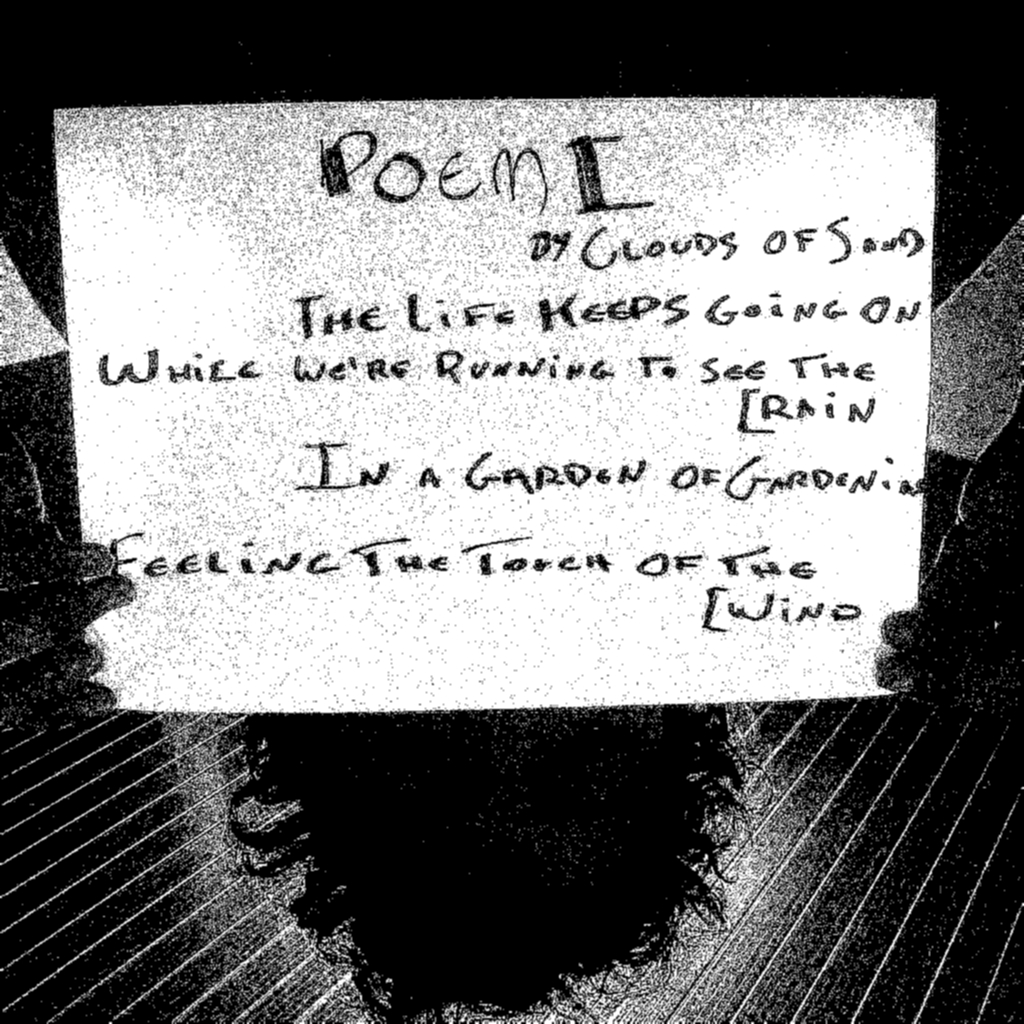 POEM I
BY CLOUDS OF SAND
THE LIFE KEEPS GOING ON
WHILE WE'RE RUNNING TO SEE THE
[RAIN
IN A GARDEN OF GARDENIAS
FEELING THE TOUCH OF THE
[WIND